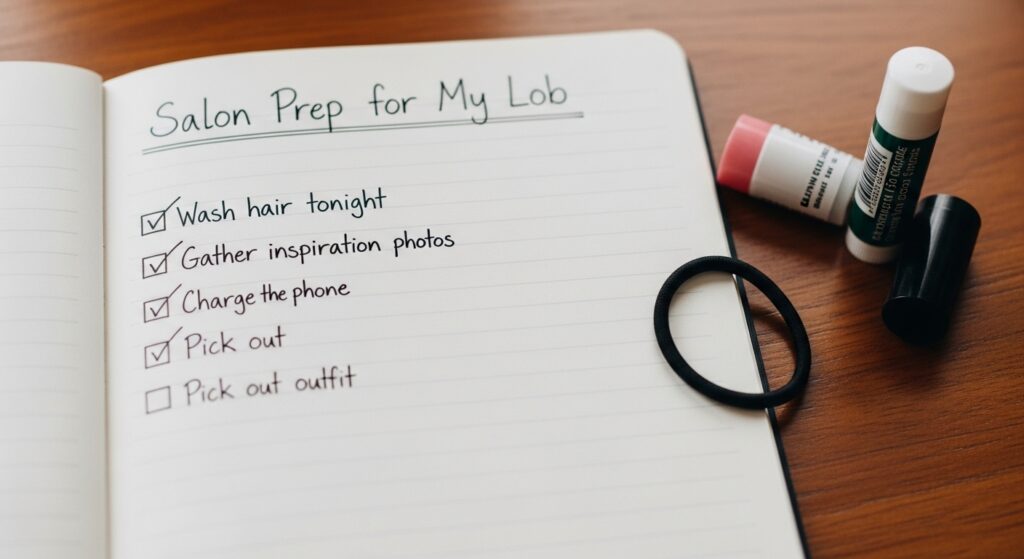 Salon Prep for My Lob
Wash hair tonight
Gather inspiration photos
Charge the phone
Pick out
Pick out outfit